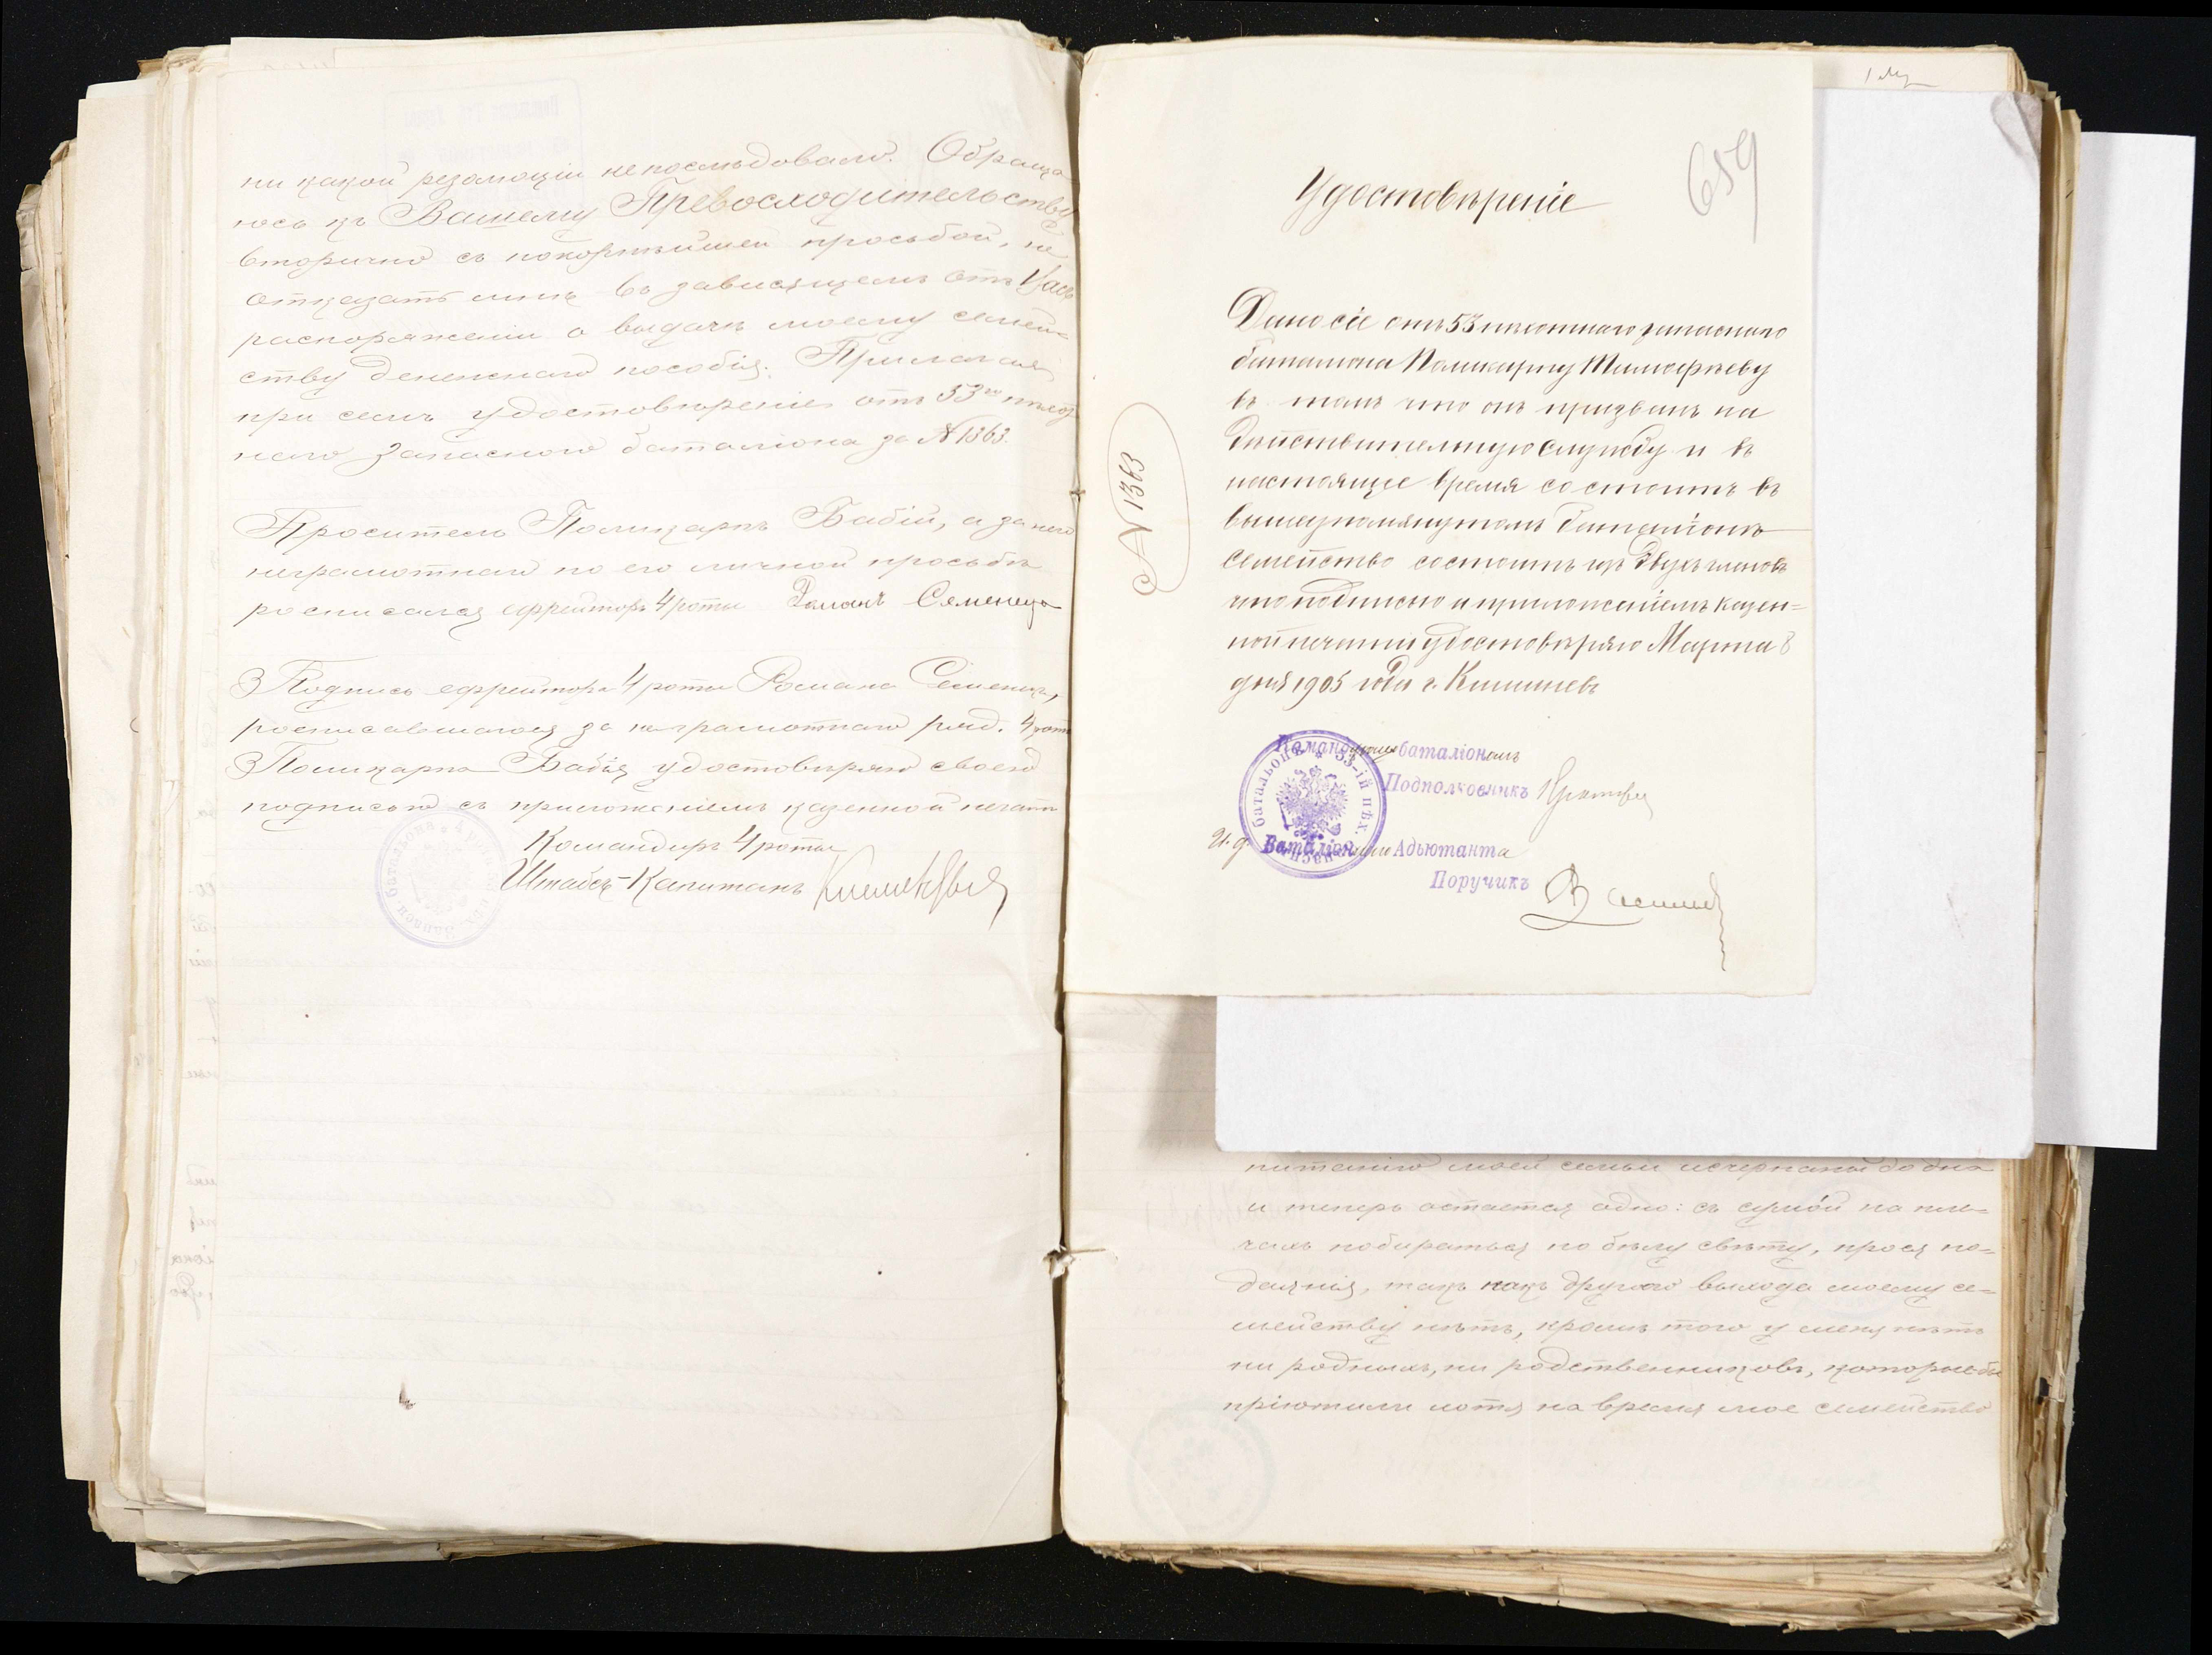 ни какой резолюціи непослѣдовало. Обраща
юсь къ Вашему Превосходительству
вторично съ покорнѣйшей просьбой, не
отказать мнѣ въ зависящемъ отъ Васъ
распоряженіи о выдачѣ моему семей=
ству денежнаго пособія. Прилагая
при семъ удостовѣреніе отъ 53го пѣхот
наго запаснаго баталіона за № 1363.
Проситель Поликарпъ Бабій, а за него
неграмотнаго по его личной просьбѣ
росписался ефрейторъ 4 роты Романъ Семенецъ
Подпись ефрейтора 4 роты Романа Семенецъ,
росписавшагося за неграмотнаго ряд. 4 роты
Поликарпа Бабія удостовѣряю своею
подписью съ приложеніемъ казенной печати
Командиръ 4 роты
Штабсъ-Капитанъ
1 Мр
659
Удостовѣреніе
№ 1363
Дано сіе отъ 53 пѣхотнаго запаснаго
баталіона Поликарпу Тимофѣеву
въ томъ что онъ призванъ на
дѣйствительную службу и въ
настоящее время состоитъ въ
вышеупомянутомъ баталіонѣ
семейство состоитъ изъ двухъ членовъ
что подписью и приложеніемъ казен=
ной печати удостовѣряю Марта 8
дня 1905 года г. Кишиневъ
Командующій баталіономъ
Подполковникъ
И. д. Баталіоннаго Адъютанта
Поручикъ
баталіонъ 53-ій пѣх.
питанію моей семьи исчерпаны до дна
и теперь остается одно: съ сумой на пле=
чахъ побираться по бѣлу свѣту, прося по=
даянія, такъ какъ другого выхода моему се=
мейству нѣтъ, кромѣ того у меня нѣтъ
ни родныхъ, ни родственниковъ, которые бы
пріютили хотя на время мое семейство